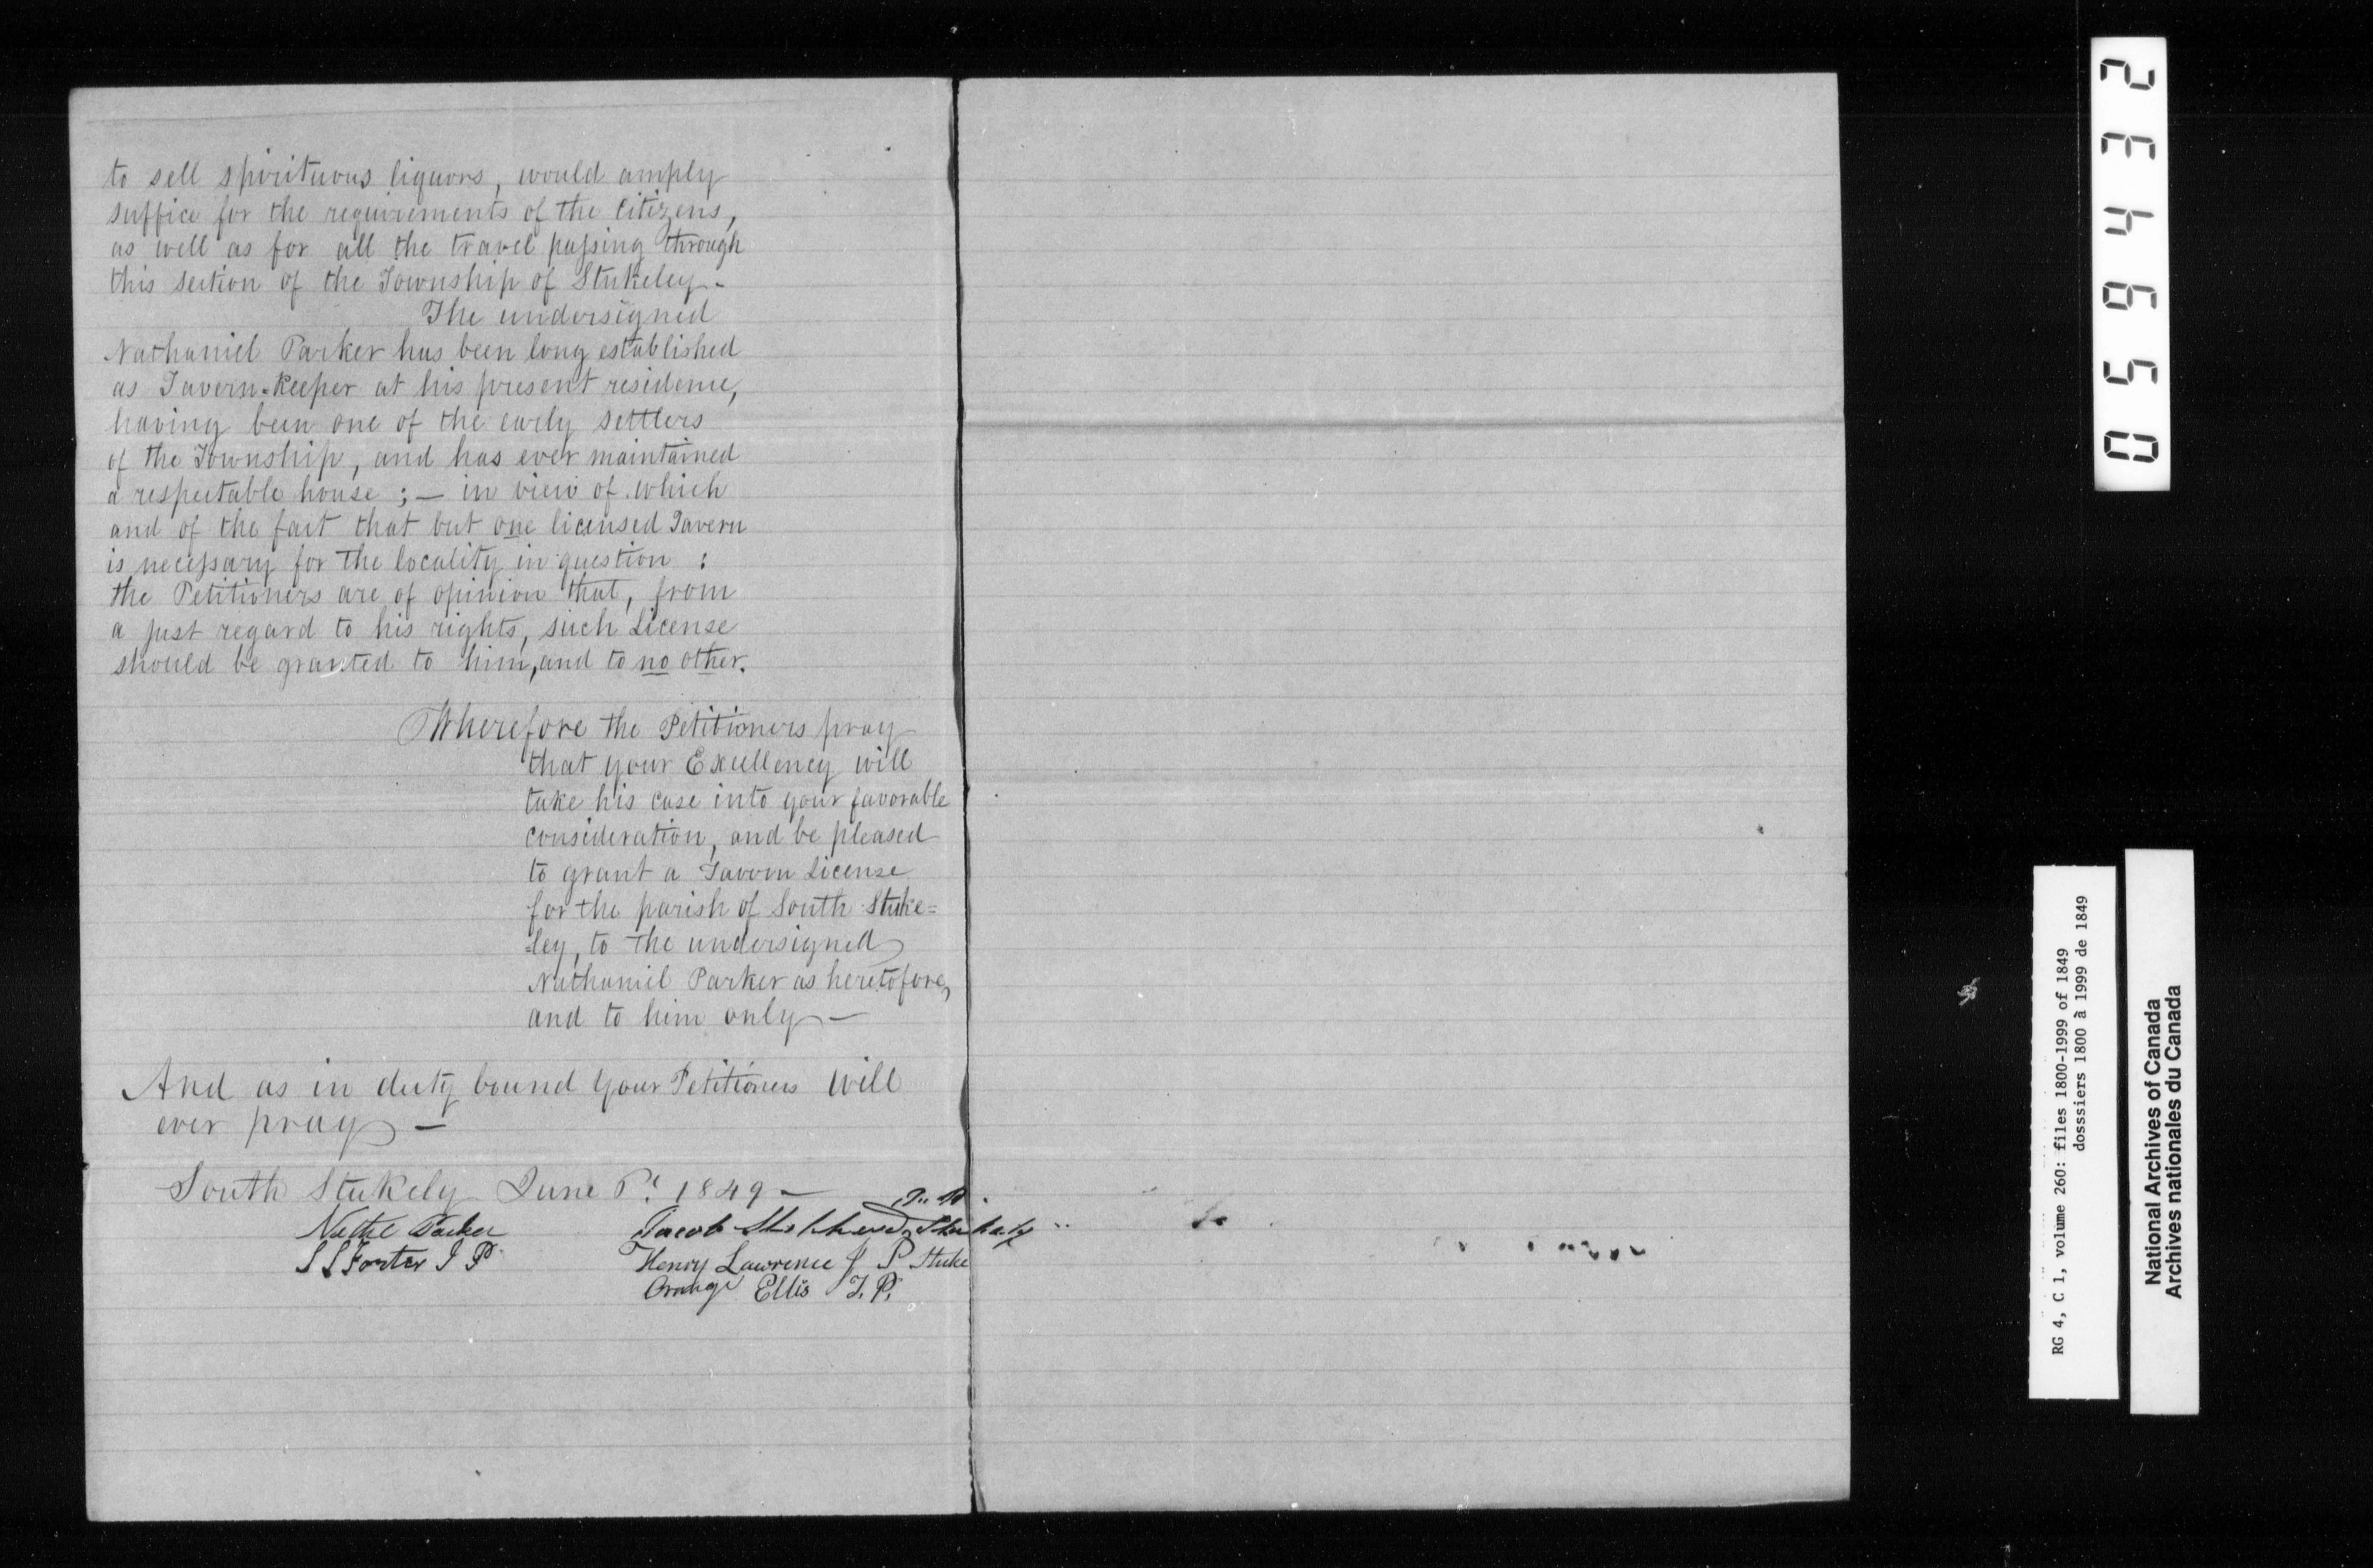 to sell spirituous liquors, would amply
suffice for the requirements of the Citizens,
as well as for all the travel passing through
this section of the Township of Stukeley -
The undersigned
Nathaniel Parker has been long established
as Tavern-Keeper at his present residence,
having been one of the early settlers
of the Township, and has ever maintained
a respectable house ; — in view of which
and of the fact that but one licensed Tavern
is necessary for the locality in question :
the Petitioners are of opinion that, from
a just regard to his rights, such License
should be granted to him, and to no other.
Wherefore the Petitioners pray
that your Excellency will
take his case into your favorable
consideration, and be pleased
to grant a Tavern License
for the parish of South Stuke=
=ley, to the undersigned
Nathaniel Parker as heretofore,
and to him only —
And as in duty bound your Petitioners will
ever pray —
South Stukely June 1849 —
Nathl Parker
S S Foster J P
Jacob Stukely
Henry Lawrence J P Stuke
Orange Ellis J. P.
059432
RG 4, C 1, volume 260: files 1800-1999 of 1849
dosssiers 1800 à 1999 de 1849
National Archives of Canada
Archives nationales du Canada